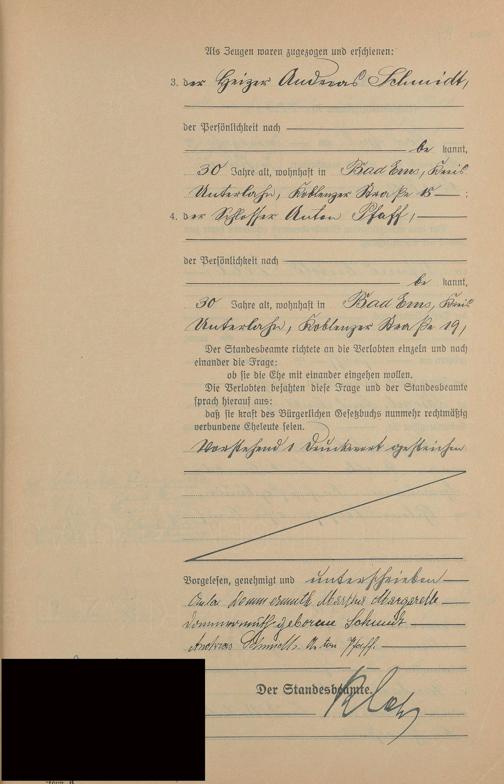 Als Zeugen waren zugezogen und erschienen:
3. der Heizer Andreas Schmidt,
der Persönlichkeit nach
be kannt,
30 Jahre alt, wohnhaft in Bad Ems, Kreis
Unterlahn, Koblenzer Straße 15 ;
4. der Schlosser Anton Pfaff,
der Persönlichkeit nach
be kannt,
30 Jahre alt, wohnhaft in Bad Ems, Kreis
Unterlahn, Koblenzer Straße 19,
Der Standesbeamte richtete an die Verlobten einzeln und nach
einander die Frage:
ob sie die Ehe mit einander eingehen wollen.
Die Verlobten bejahten diese Frage und der Standesbeamte
sprach hierauf aus:
daß sie kraft des Bürgerlichen Gesetzbuchs nunmehr rechtmäßig
verbundene Eheleute seien.
Vorstehend 1 Druckwort gestrichen
Vorgelesen, genehmigt und unterschrieben
Dommermuth Martha Margarethe
Dommermuth geborene Schmidt
Andreas Schmidt. Anton Pfaff.
Der Standesbeamte.